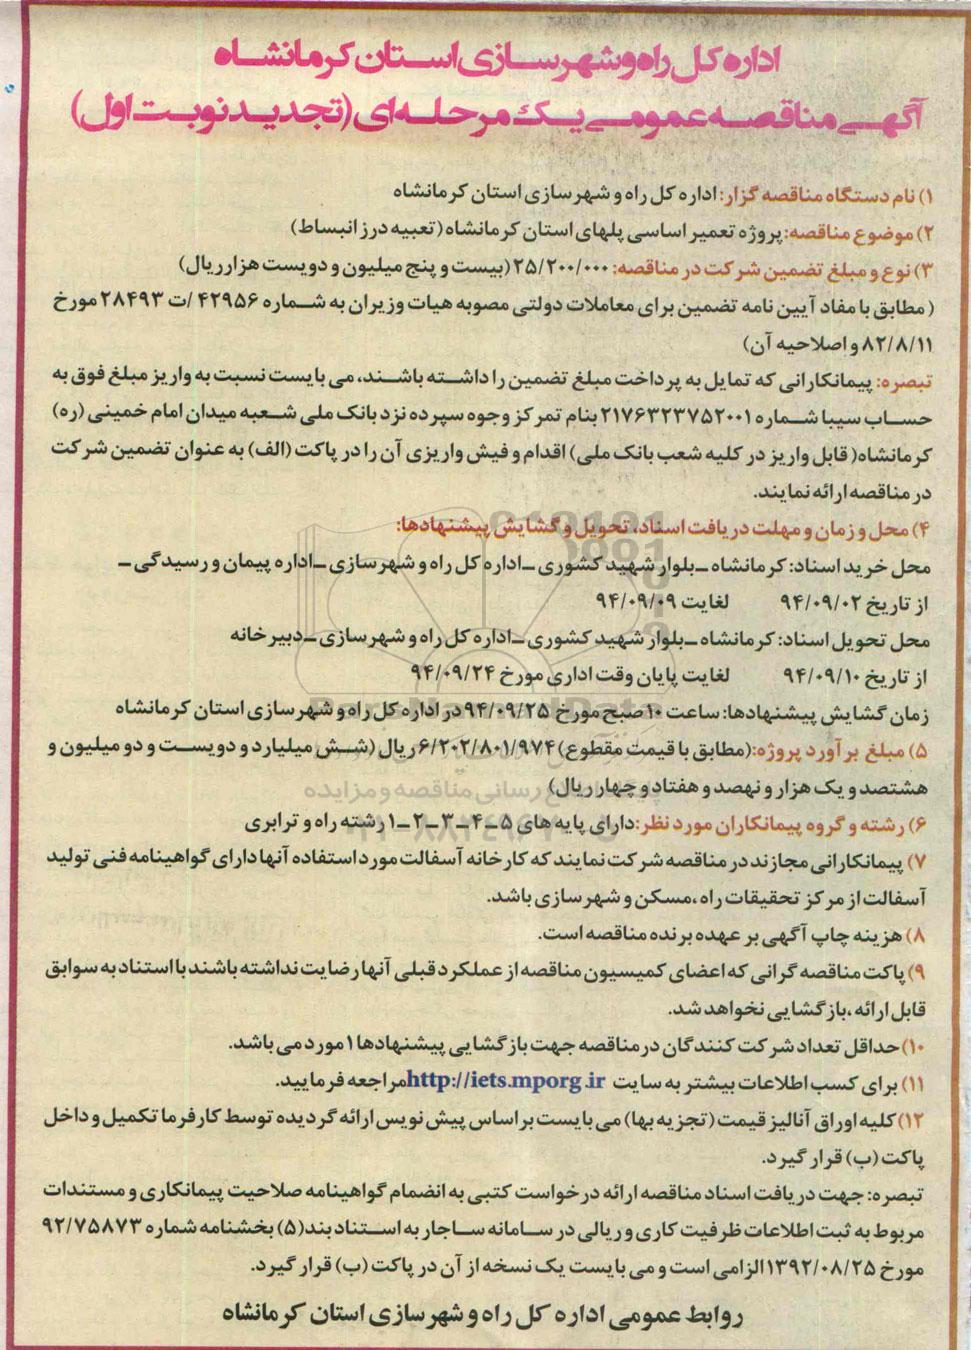 اداره کل راه و شهرسازی استان کرمانشاه
آگهی مناقصه عمومی یک مرحله ای (تجدید نوبت اول)
۱) نام دستگاه مناقصه گزار: اداره کل راه و شهرسازی استان کرمانشاه
۲) موضوع مناقصه: پروژه تعمیر اساسی پلهای استان کرمانشاه (تعبیه درز انبساط)
۳) نوع و مبلغ تضمین شرکت در مناقصه: ۲۵/۲۰۰/۰۰۰ (بیست و پنج میلیون و دویست هزار ریال)
(مطابق با مفاد آیین نامه تضمین برای معاملات دولتی مصوبه هیات وزیران به شماره ۴۲۹۵۶ /ت ۲۸۴۹۳ مورخ
۸۲/۸/۱۱ و اصلاحیه آن)
تبصره: پیمانکارانی که تمایل به پرداخت مبلغ تضمین را داشته باشند، می بایست نسبت به واریز مبلغ فوق به
حساب سیبا شماره ۲۱۷۶۳۲۳۷۵۲۰۰۱ بنام تمرکز وجوه سپرده نزد بانک ملی شعبه میدان امام خمینی (ره)
کرمانشاه( قابل واریز در کلیه شعب بانک ملی) اقدام و فیش واریزی آن را در پاکت (الف) به عنوان تضمین شرکت
در مناقصه ارائه نمایند.
۴) محل و زمان و مهلت دریافت اسناد، تحویل و گشایش پیشنهادها:
محل خرید اسناد: کرمانشاه ــ بلوار شهید کشوری ــ اداره کل راه و شهرسازی ــ اداره پیمان و رسیدگی ــ
از تاریخ ۹۴/۰۹/۰۲ لغایت ۹۴/۰۹/۰۹
محل تحویل اسناد: کرمانشاه ــ بلوار شهید کشوری ــ اداره کل راه و شهرسازی ــ دبیرخانه
از تاریخ ۹۴/۰۹/۱۰ لغایت پایان وقت اداری مورخ ۹۴/۰۹/۲۴
زمان گشایش پیشنهادها: ساعت ۱۰ صبح مورخ ۹۴/۰۹/۲۵ در اداره کل راه و شهرسازی استان کرمانشاه
۵) مبلغ برآورد پروژه: (مطابق با قیمت مقطوع) ۶/۲۰۲/۸۰۱/۹۷۴ ریال (شش میلیارد و دویست و دو میلیون و
هشتصد و یک هزار و نهصد و هفتاد و چهار ریال)
۶) رشته و گروه پیمانکاران مورد نظر: دارای پایه های ۵ ــ ۴ ــ ۳ ــ ۲ ــ ۱ رشته راه و ترابری
۷) پیمانکارانی مجازند در مناقصه شرکت نمایند که کارخانه آسفالت مورد استفاده آنها دارای گواهینامه فنی تولید
آسفالت از مرکز تحقیقات راه ،مسکن و شهرسازی باشد.
۸) هزینه چاپ آگهی بر عهده برنده مناقصه است.
۹) پاکت مناقصه گرانی که اعضای کمیسیون مناقصه از عملکرد قبلی آنها رضایت نداشته باشند با استناد به سوابق
قابل ارائه ،بازگشایی نخواهد شد.
۱۰) حداقل تعداد شرکت کنندگان در مناقصه جهت بازگشایی پیشنهادها ۱ مورد می باشد.
۱۱) برای کسب اطلاعات بیشتر به سایت http://iets.mporg.ir مراجعه فرمایید.
۱۲) کلیه اوراق آنالیز قیمت (تجزیه بها) می بایست براساس پیش نویس ارائه گردیده توسط کارفرما تکمیل و داخل
پاکت (ب) قرار گیرد.
تبصره: جهت دریافت اسناد مناقصه ارائه درخواست کتبی به انضمام گواهینامه صلاحیت پیمانکاری و مستندات
مربوط به ثبت اطلاعات ظرفیت کاری و ریالی در سامانه ساجار به استناد بند(۵) بخشنامه شماره ۹۲/۷۵۸۷۳
مورخ ۱۳۹۲/۰۸/۲۵ الزامی است و می بایست یک نسخه از آن در پاکت (ب) قرار گیرد.
روابط عمومی اداره کل راه و شهرسازی استان کرمانشاه